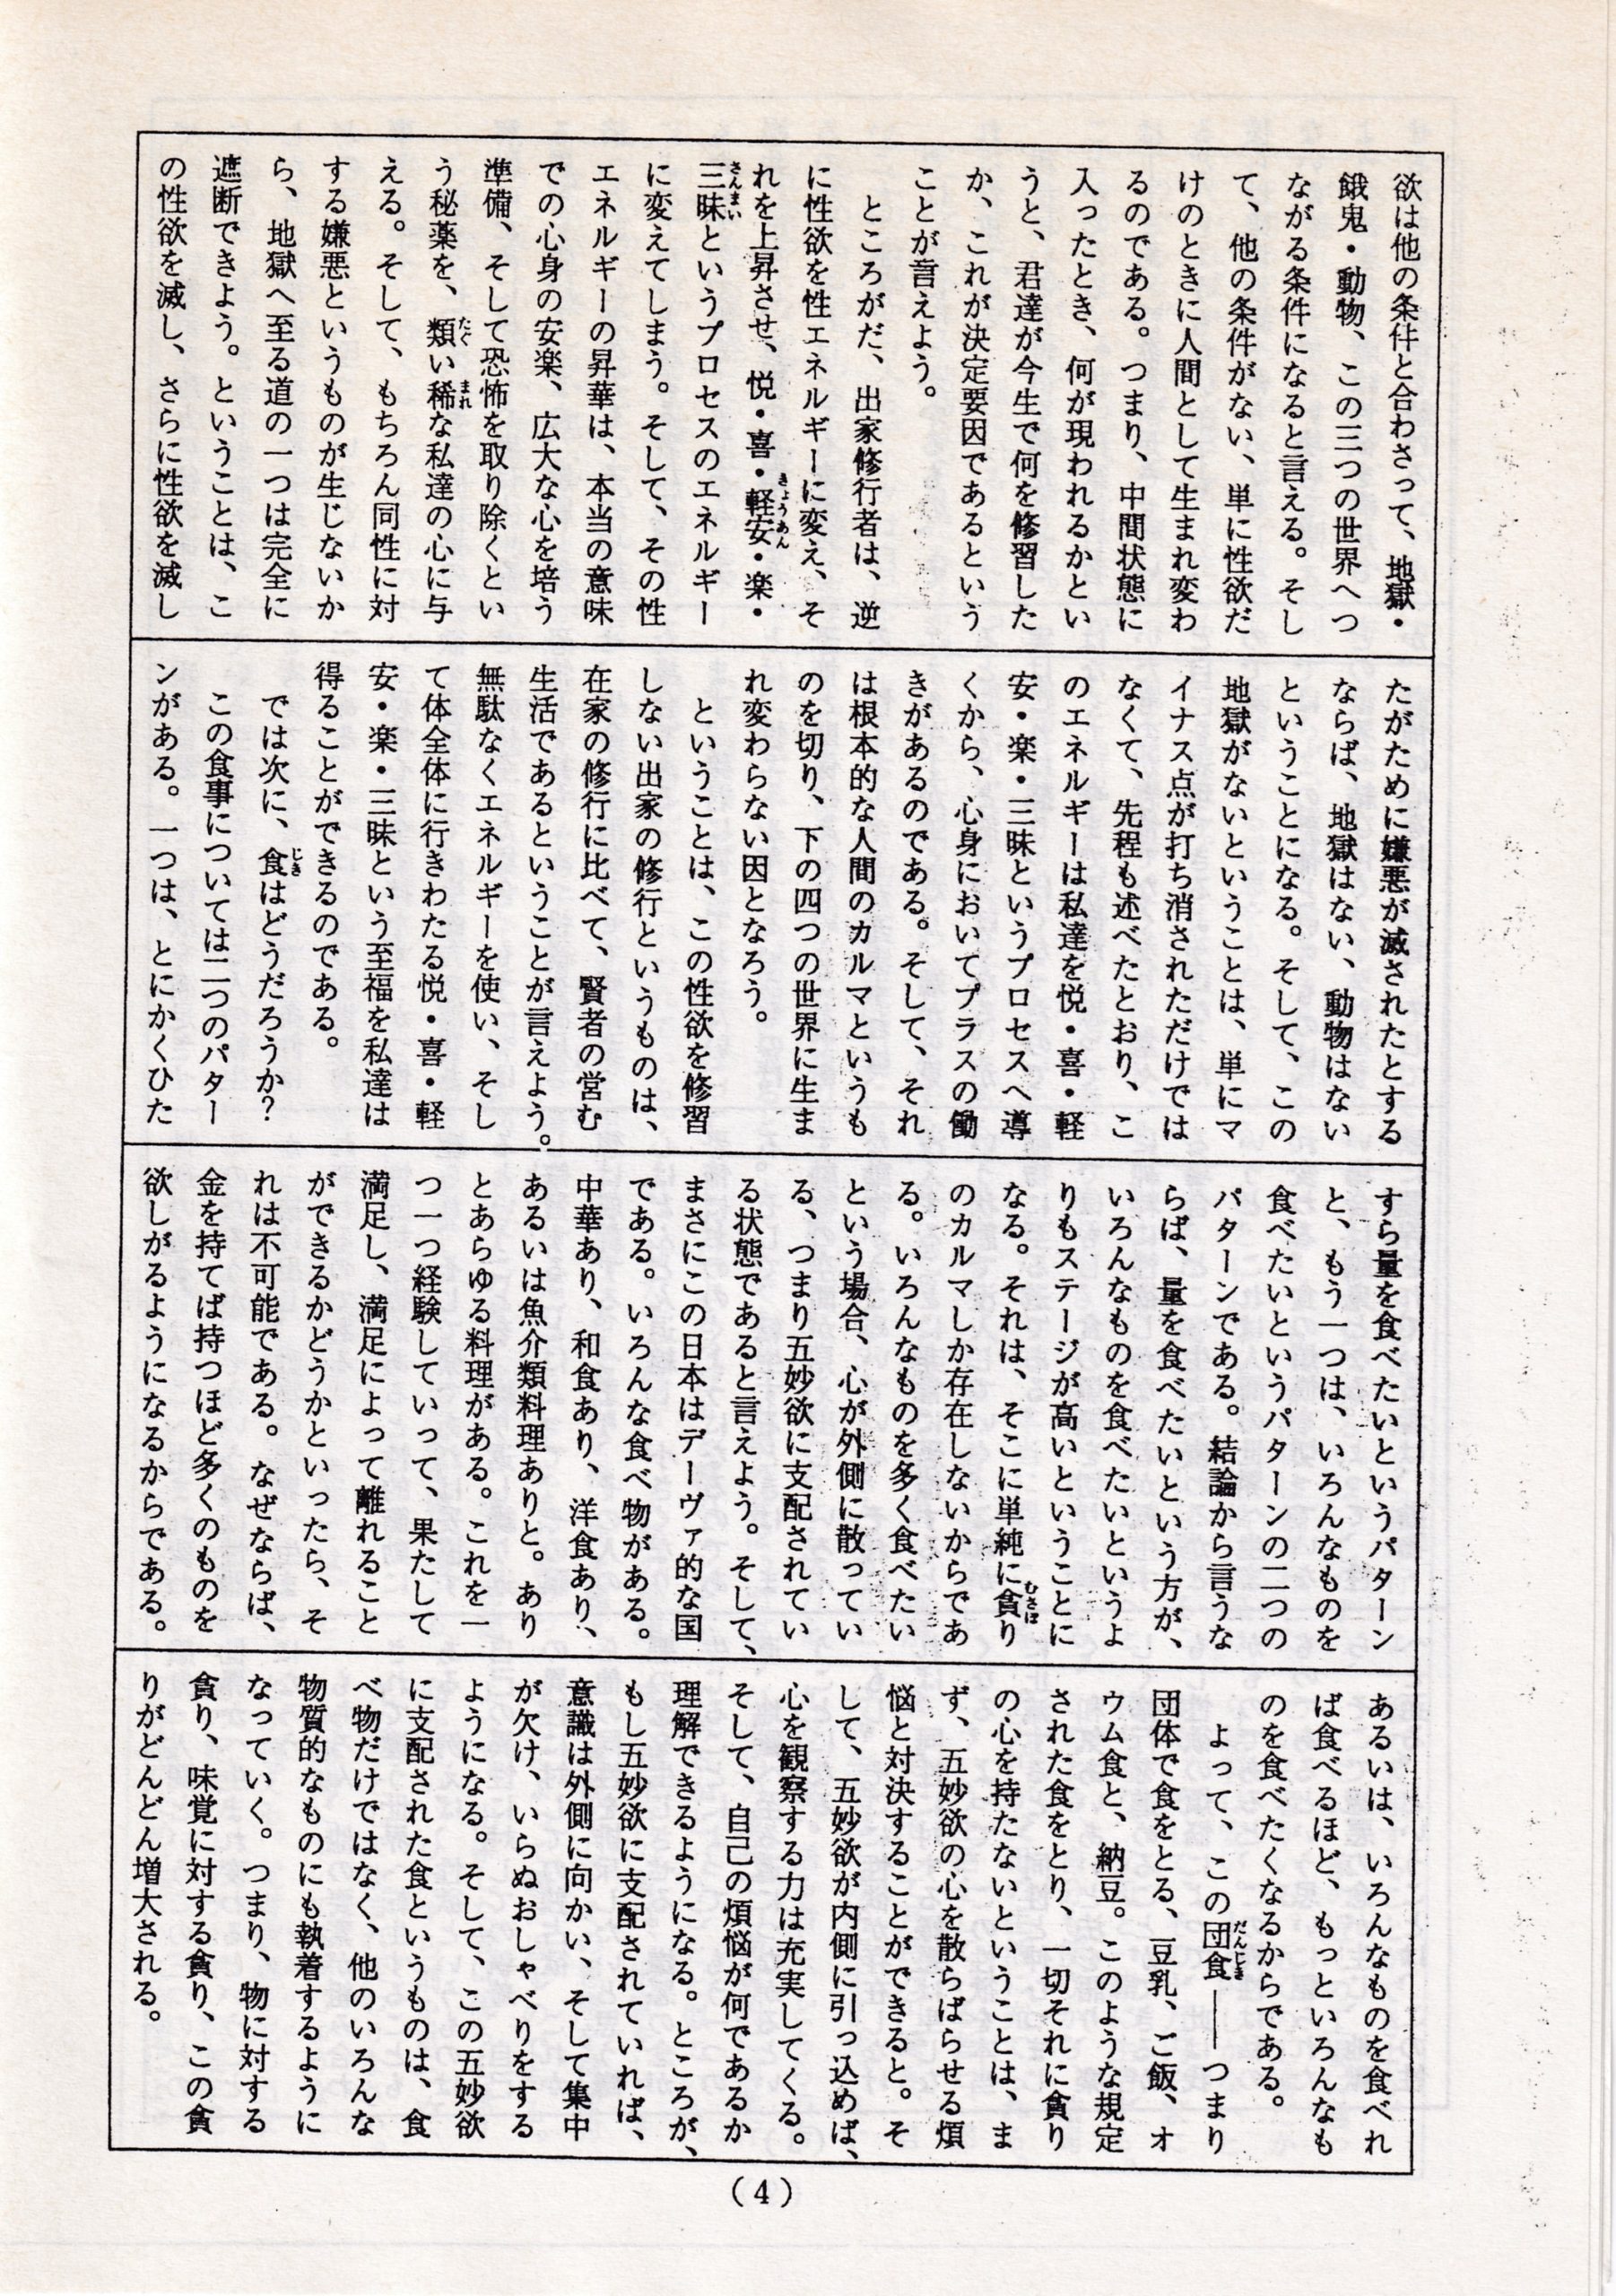 欲は他の条件と合わさって、地獄・
餓鬼・動物、この三つの世界へつ
ながる条件になると言える。そし
て、他の条件がない、単に性欲だ
けのときに人間として生まれ変わ
るのである。つまり、中間状態に
入ったとき、何が現われるかとい
うと、君達が今生で何を修習した
か、これが決定要因であるという
ことが言えよう。
ところがだ、出家修行者は、逆
に性欲を性エネルギーに変え、そ
れを上昇させ、悦・喜・軽安・楽・
三昧というプロセスのエネルギー
に変えてしまう。そして、その性
エネルギーの昇華は、本当の意味
での心身の安楽、広大な心を培う
準備、そして恐怖を取り除くとい
う秘薬を、類い稀な私達の心に与
える。そして、もちろん同性に対
する嫌悪というものが生じないか
ら、地獄へ至る道の一つは完全に
遮断できよう。ということは、こ
の性欲を滅し、さらに性欲を滅し
たがために嫌悪が滅されたとする
ならば、地獄はない、動物はない
ということになる。そして、この
地獄がないということは、単にマ
イナス点が打ち消されただけでは
なくて、先程も述べたとおり、こ
のエネルギーは私達を悦・喜・軽
安・楽・三昧というプロセスへ導
くから、心身においてプラスの働
きがあるのである。そして、それ
は根本的な人間のカルマというも
のを切り、下の四つの世界に生ま
れ変わらない因となろう。
ということは、この性欲を修習
しない出家の修行というものは、
在家の修行に比べて、賢者の営む
生活であるということが言えよう。
無駄なくエネルギーを使い、そし
て体全体に行きわたる悦・喜・軽
安・楽・三昧という至福を私達は
得ることができるのである。
では次に、食はどうだろうか？
この食事については二つのパター
ンがある。一つは、とにかくひた
すら量を食べたいというパターン
と、もう一つは、いろんなものを
食べたいというパターンの二つの
パターンである。結論から言うな
らば、量を食べたいという方が、
いろんなものを食べたいというよ
りもステージが高いということに
なる。それは、そこに単純に貪り
のカルマしか存在しないからであ
る。いろんなものを多く食べたい
という場合、心が外側に散ってい
る、つまり五妙欲に支配されてい
る状態であると言えよう。そして、
まさにこの日本はデーヴァ的な国
である。いろんな食べ物がある。
中華あり、和食あり、洋食あり、
あるいは魚介類料理ありと。あり
とあらゆる料理がある。これを一
つ一つ経験していって、果たして
満足し、満足によって離れること
ができるかどうかといったら、そ
れは不可能である。なぜならば、
金を持てば持つほど多くのものを
欲しがるようになるからである。
あるいは、いろんなものを食べれ
ば食べるほど、もっといろんなも
のを食べたくなるからである。
よって、この団食――つまり
団体で食をとる、豆乳、ご飯、オ
ウム食と、納豆。このような規定
された食をとり、一切それに貪り
の心を持たないということは、ま
ず、五妙欲の心を散らばらせる煩
悩と対決することができると。そ
して、五妙欲が内側に引っ込めば、
心を観察する力は充実してくる。
そして、自己の煩悩が何であるか
理解できるようになる。ところが、
もし五妙欲に支配されていれば、
意識は外側に向かい、そして集中
が欠け、いらぬおしゃべりをする
ようになる。そして、この五妙欲
に支配された食というものは、食
べ物だけではなく、他のいろんな
物質的なものにも執着するように
なっていく。つまり、物に対する
貪り、味覚に対する貪り、この貪
りがどんどん増大される。
(4)